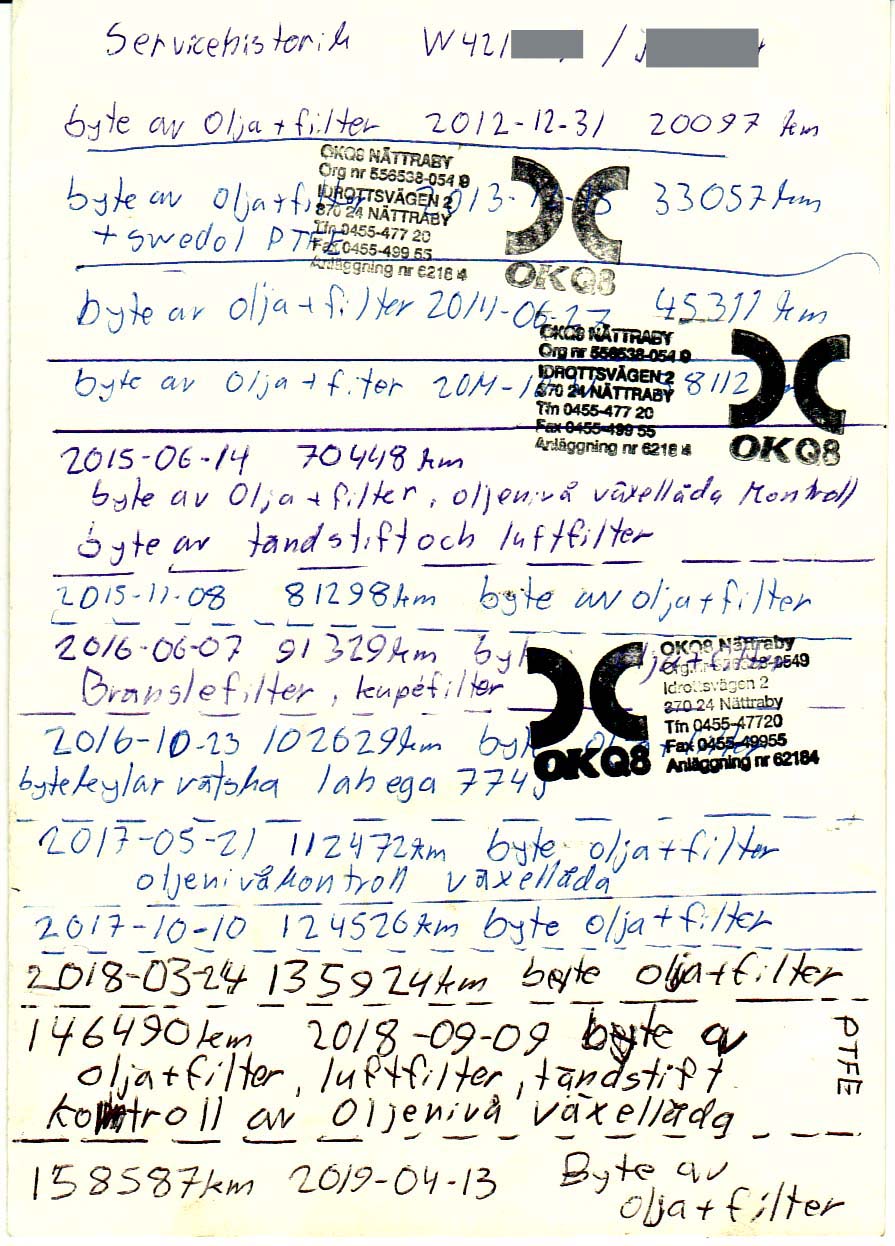 Servicehistorik W421 /
byte av olja + filter 2012-12-31 20097 km
OKQ8 NÄTTRABY
Org nr 556538-054 9
IDROTTSVÄGEN 2
370 24 NÄTTRABY
Tfn 0455-477 20
Fax 0455-499 55
Anläggning nr 6218 4
OKQ8
byte av olja + filter 2013-12-15 33057 km
+ swedol PTFE
byte av olja + filter 2014-06-27 45311 km
OKQ8 NÄTTRABY
Org nr 556538-054 9
IDROTTSVÄGEN 2
370 24 NÄTTRABY
Tfn 0455-477 20
Fax 0455-499 55
Anläggning nr 6218 4
OKQ8
byte av olja + filter 8112
2015-06-14 70448 km
byte av olja + filter, oljenivå växellåda kontroll
byte av tändstift och luftfilter
2015-11-08 81298 km byte av olja + filter
2016-06-07 91329 km byte olja + filter
Bränslefilter, kupéfilter
OKQ8 Nättraby
Org.nr 556538-0549
Idrottsvägen 2
370 24 Nättraby
Tfn 0455-47720
Fax 0455-49955
Anläggning nr 62184
OKQ8
2016-10-23 102629 km byte olja + filter
byte kylar vätska lahega 774
2017-05-21 112472 km byte olja + filter
oljenivåkontroll växellåda
2017-10-10 124526 km byte olja + filter
2018-03-24 135924 km byte olja + filter
146490 km 2018-09-09 byte av
olja + filter, luftfilter, tändstift
kontroll av oljenivå växellåda
PTFE
158587 km 2019-04-13 Byte av
olja + filter